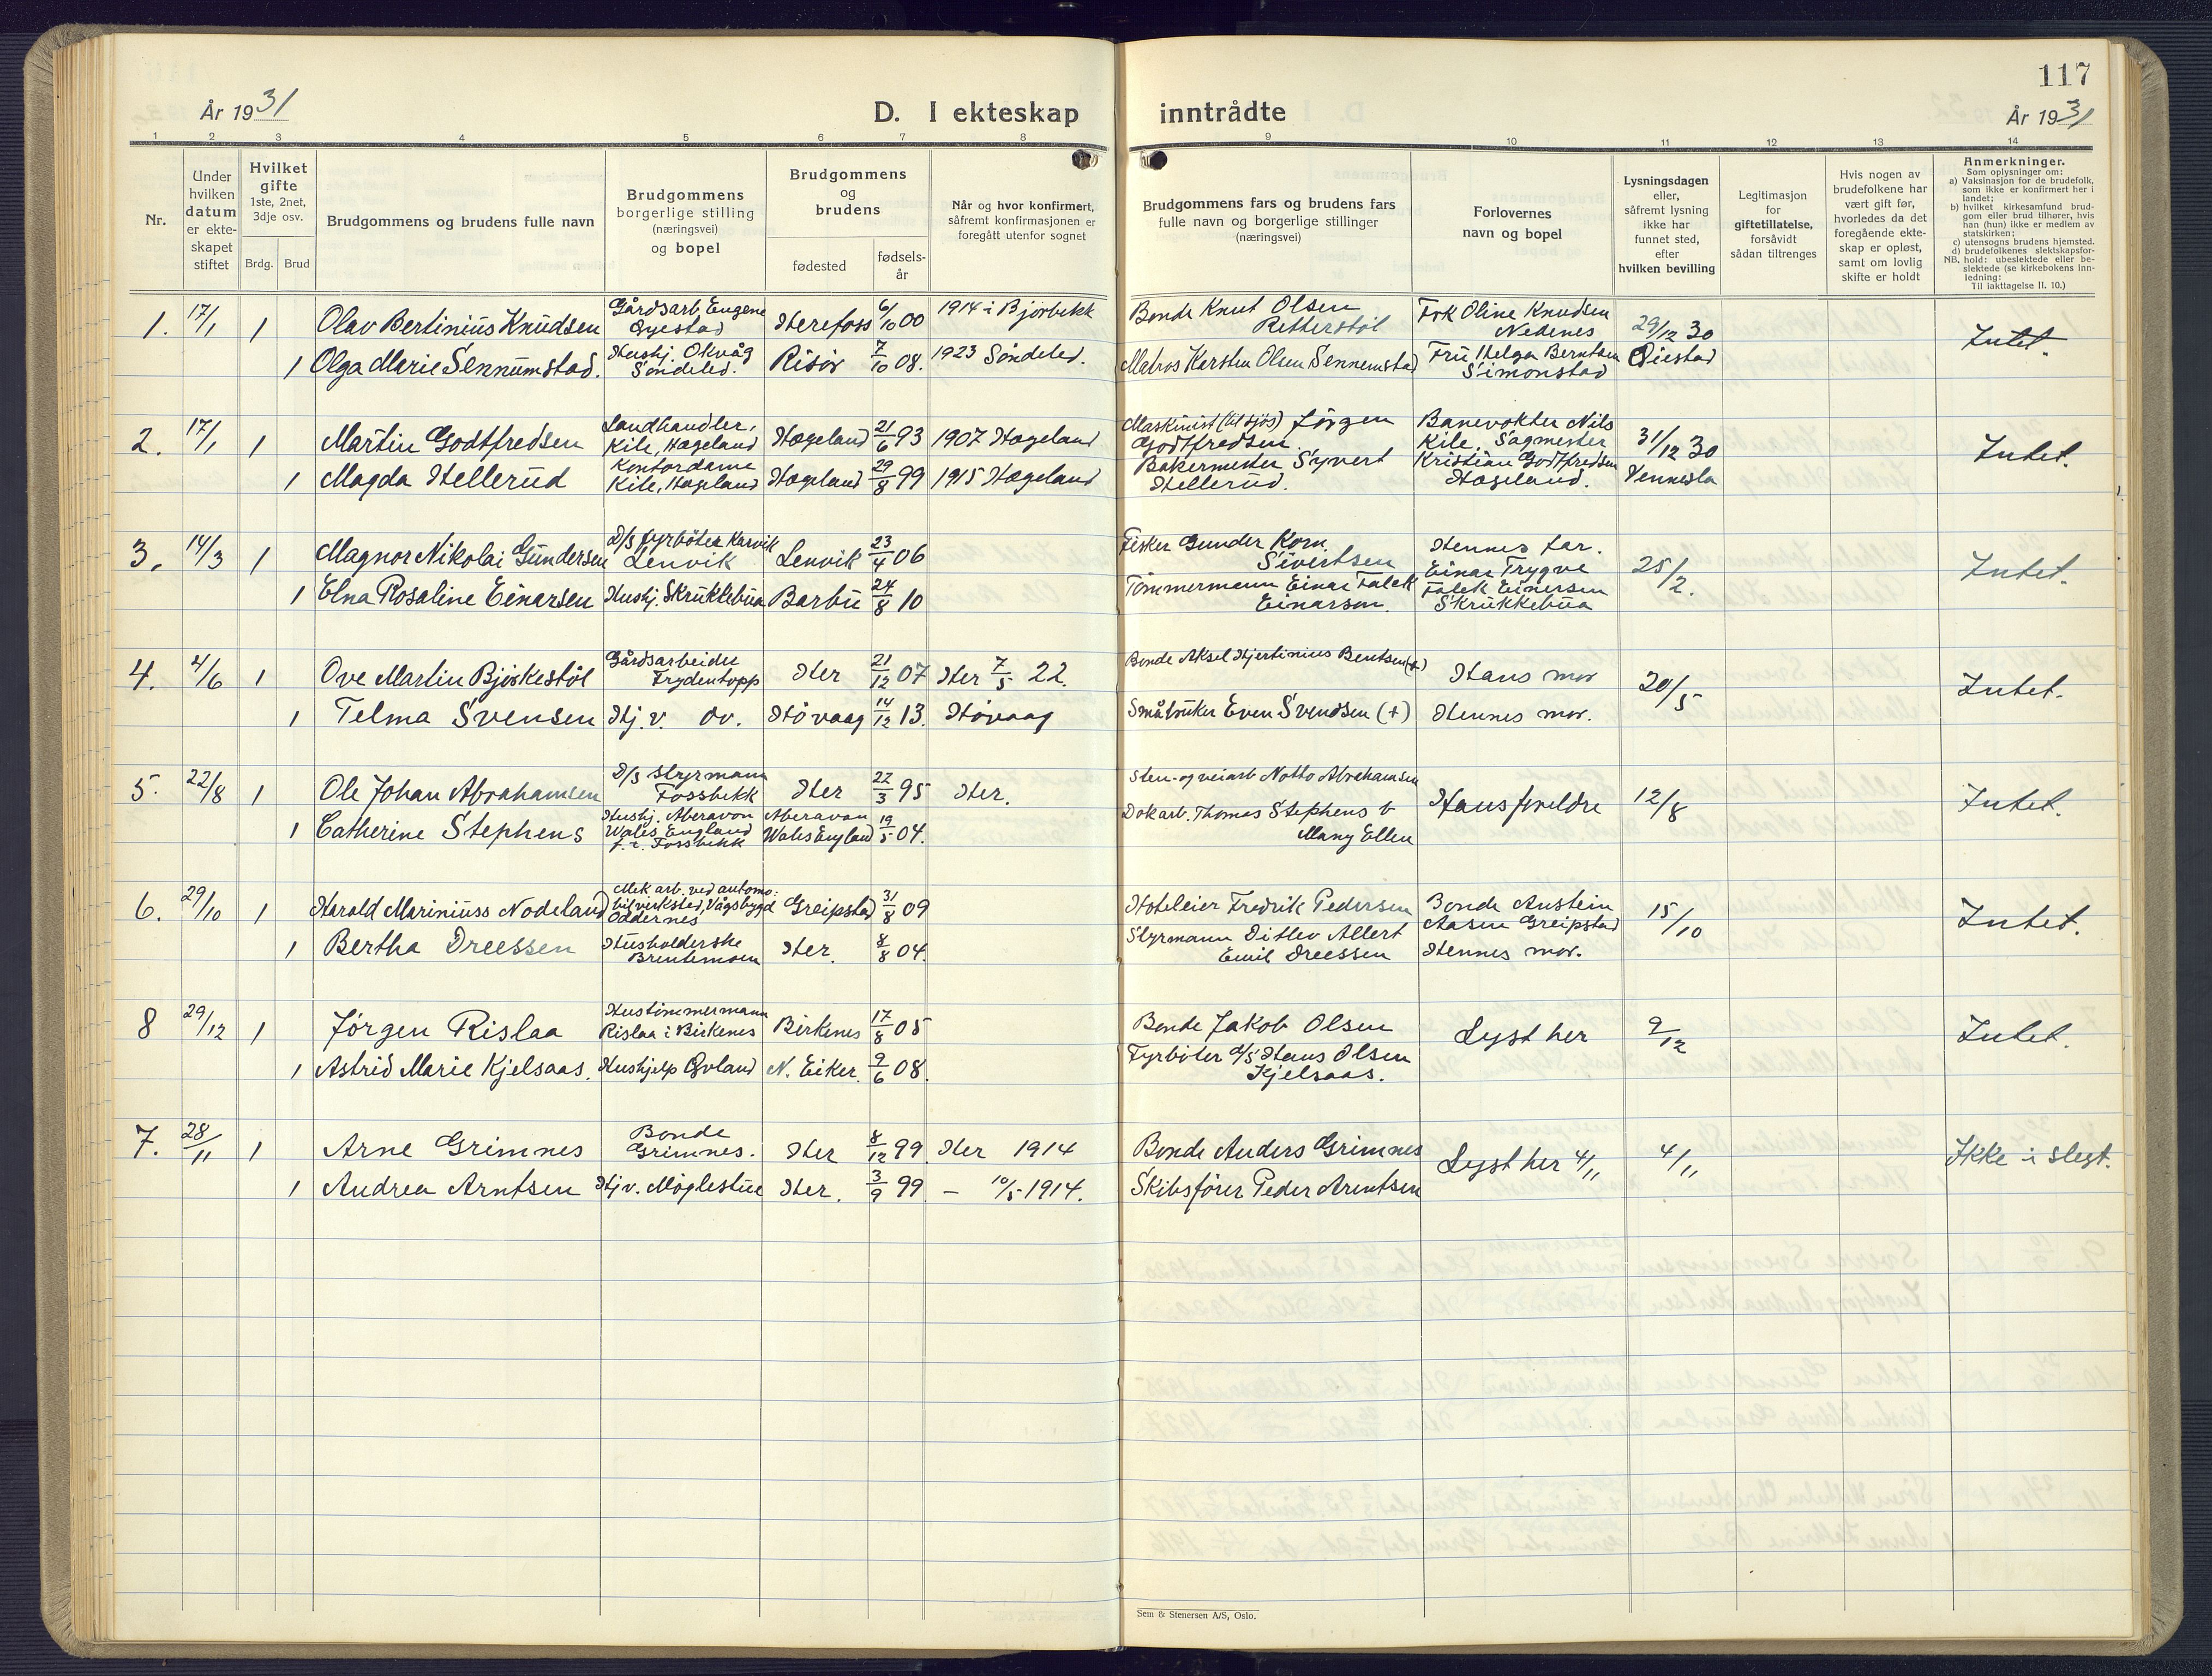 117
År 1931
D. I ekteskap inntrådte
År 1931
1 2 3 4 5 6 7 8 9 10 11 12 13 14
Nr.
Under hvilken datum er ekteskapet stiftet
Hvilket gifte 1ste, 2net, 3dje osv.
Brdg. Brud
Brudgommens og brudens fulle navn
Brudgommens borgerlige stilling (næringsvei) og bopel
Brudgommens og brudens
fødested
fødselsår
Når og hvor konfirmert, såfremt konfirmasjonen er foregått utenfor sognet
Brudgommens fars og brudens fars fulle navn og borgerlige stillinger (næringsvei)
Forlovernes navn og bopel
Lysningsdagen eller, såfremt lysning ikke har funnet sted, efter hvilken bevilling
Legitimasjon for giftetillatelse, forsåvidt sådan tiltrenges
Hvis nogen av brudefolkene har vært gift før, hvorledes da det foregående ekteskap er opløst, samt om lovlig skifte er holdt
Anmerkninger.
Som oplysninger om:
a) Vaksinasjon for de brudefolk, som ikke er konfirmert her i landet;
b) hvilket kirkesamfund brudgom eller brud tilhører, hvis han (hun) ikke er medlem av statskirken;
c) utensogns brudens hjemsted.
d) brudefolkenes slektskapsforhold: ubeslektede eller beslektede (se kirkebokens innledning:
NB.
Til iakttagelse II. 10.)
1. 17/1 1 Olav Bertinius Knudsen Gårdsarb. Eugene Øyestad Herefoss 6/10 00 1914 i Bjorbekk Bonde Knut Olsen Retterstøl Frk Oline Knudsen Nedenes 29/12 30 Øiestad Intet.
1 Olga Marie Sennumstad. Hushj. Okvåg Søndeled. Risør 7/10 08. 1923 Søndeled. Matros Karsten Olsen Sennumstad Fru Helga Berntsen Simonstad
2. 17/1 1 Martin Godtfredsen Landhandler, Kile, Hægeland Hægeland 21/6 93 1907 Hægeland Maskinist (til sjøs) Jørgen Godtfredsen. Banevokter Nils Kile, Sagmester Kristian Godtfredsen Hægeland. 31/12 30 Vennesla Intet.
1 Magda Hellerud Kontordame Kile, Hægeland Hægeland 29/8 99 1915 Hægeland Bakermester Syvert Hellerud.
3. 14/3 1 Magnor Nikolai Gundersen D/S fyrbøter Karvik Lenvik Lenvik 23/4 06 Fisker Gunder Korn. Sivertsen Hennes far. Einar Trygve Falck Einersen Skrukkebua 25/2. Intet.
1 Elna Rosaline Einarsen Hushj. Skrukkebua Barbu 24/8 10 Tømmermann Einar Falck Einarson.
4. 4/6 1 Ove Martin Bjorkestøl Gårdsarbeider Frydentopp Her 21/12 07 Her 7/5 22. Bonde Aksel Hjertinius Bentsen (+) Hans mor 20/5 Intet.
1 Telma Svensen Hj. v. Ov. Høvaag 14/12 13. Høvaag Småbruker Even Svendsen (+) Hennes mor.
5. 22/8 1 Ole Johan Abrahamsen D/S styrmann Fossbekk Her 22/3 95 Her. Sten- og veiarb Notto Abrahamsen Hans foreldre 12/8 Intet.
1 Catherine Stephens Hushj. Aberavon Wales, England f. t. Fossbekk Aberavon Wales England 19/5 04. Dokarb. Thomas Stephens v Mary Ellen
6. 29/10 1 Harald Mariniuss Nodeland Mek arb. ved automobilverksted, Vågsbygd Oddernes Greipstad 31/8 09 Hoteleier Fredrik Pedersen Bonde Anstein Aasen Greipstad 15/10 Intet.
1 Bertha Dreessen Husholderske Brentemoen Her. 8/8 04. Styrmann Ditlev Allert Emil Dreessen Hennes mor.
8 29/12 1 Jørgen Rislaa Hustømmermann Rislaa i Birkenes Birkenes 17/8 05 Bonde Jakob Olsen Lyst her 9/12 Intet.
1 Astrid Marie Kjelsaas. Hushjelp Øvland N. Eiker. 9/6 08. Fyrbøter d/s Hans Olsen Kjelsaas.
7. 28/11 1 Arne Grimnes Bonde Grimnes. Her 8/12 99. Her 1914 Bonde Anders Grimnes Lyst her 4/11 4/11 Ikke i slegt.
1 Andrea Arntsen Hj v. Møglestue Her. 3/9 99 – 10/5 1914. Skibsfører Peder Arntsen
Sem & Stenersen A/S, Oslo.